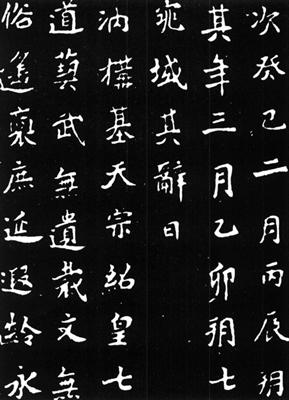 次癸巳二月丙辰朔
其年三月乙卯朔七
兆域其辭曰
汭構基天宗紹皇七
道藝武無遺裁文無
俗稟庶延遐齡永